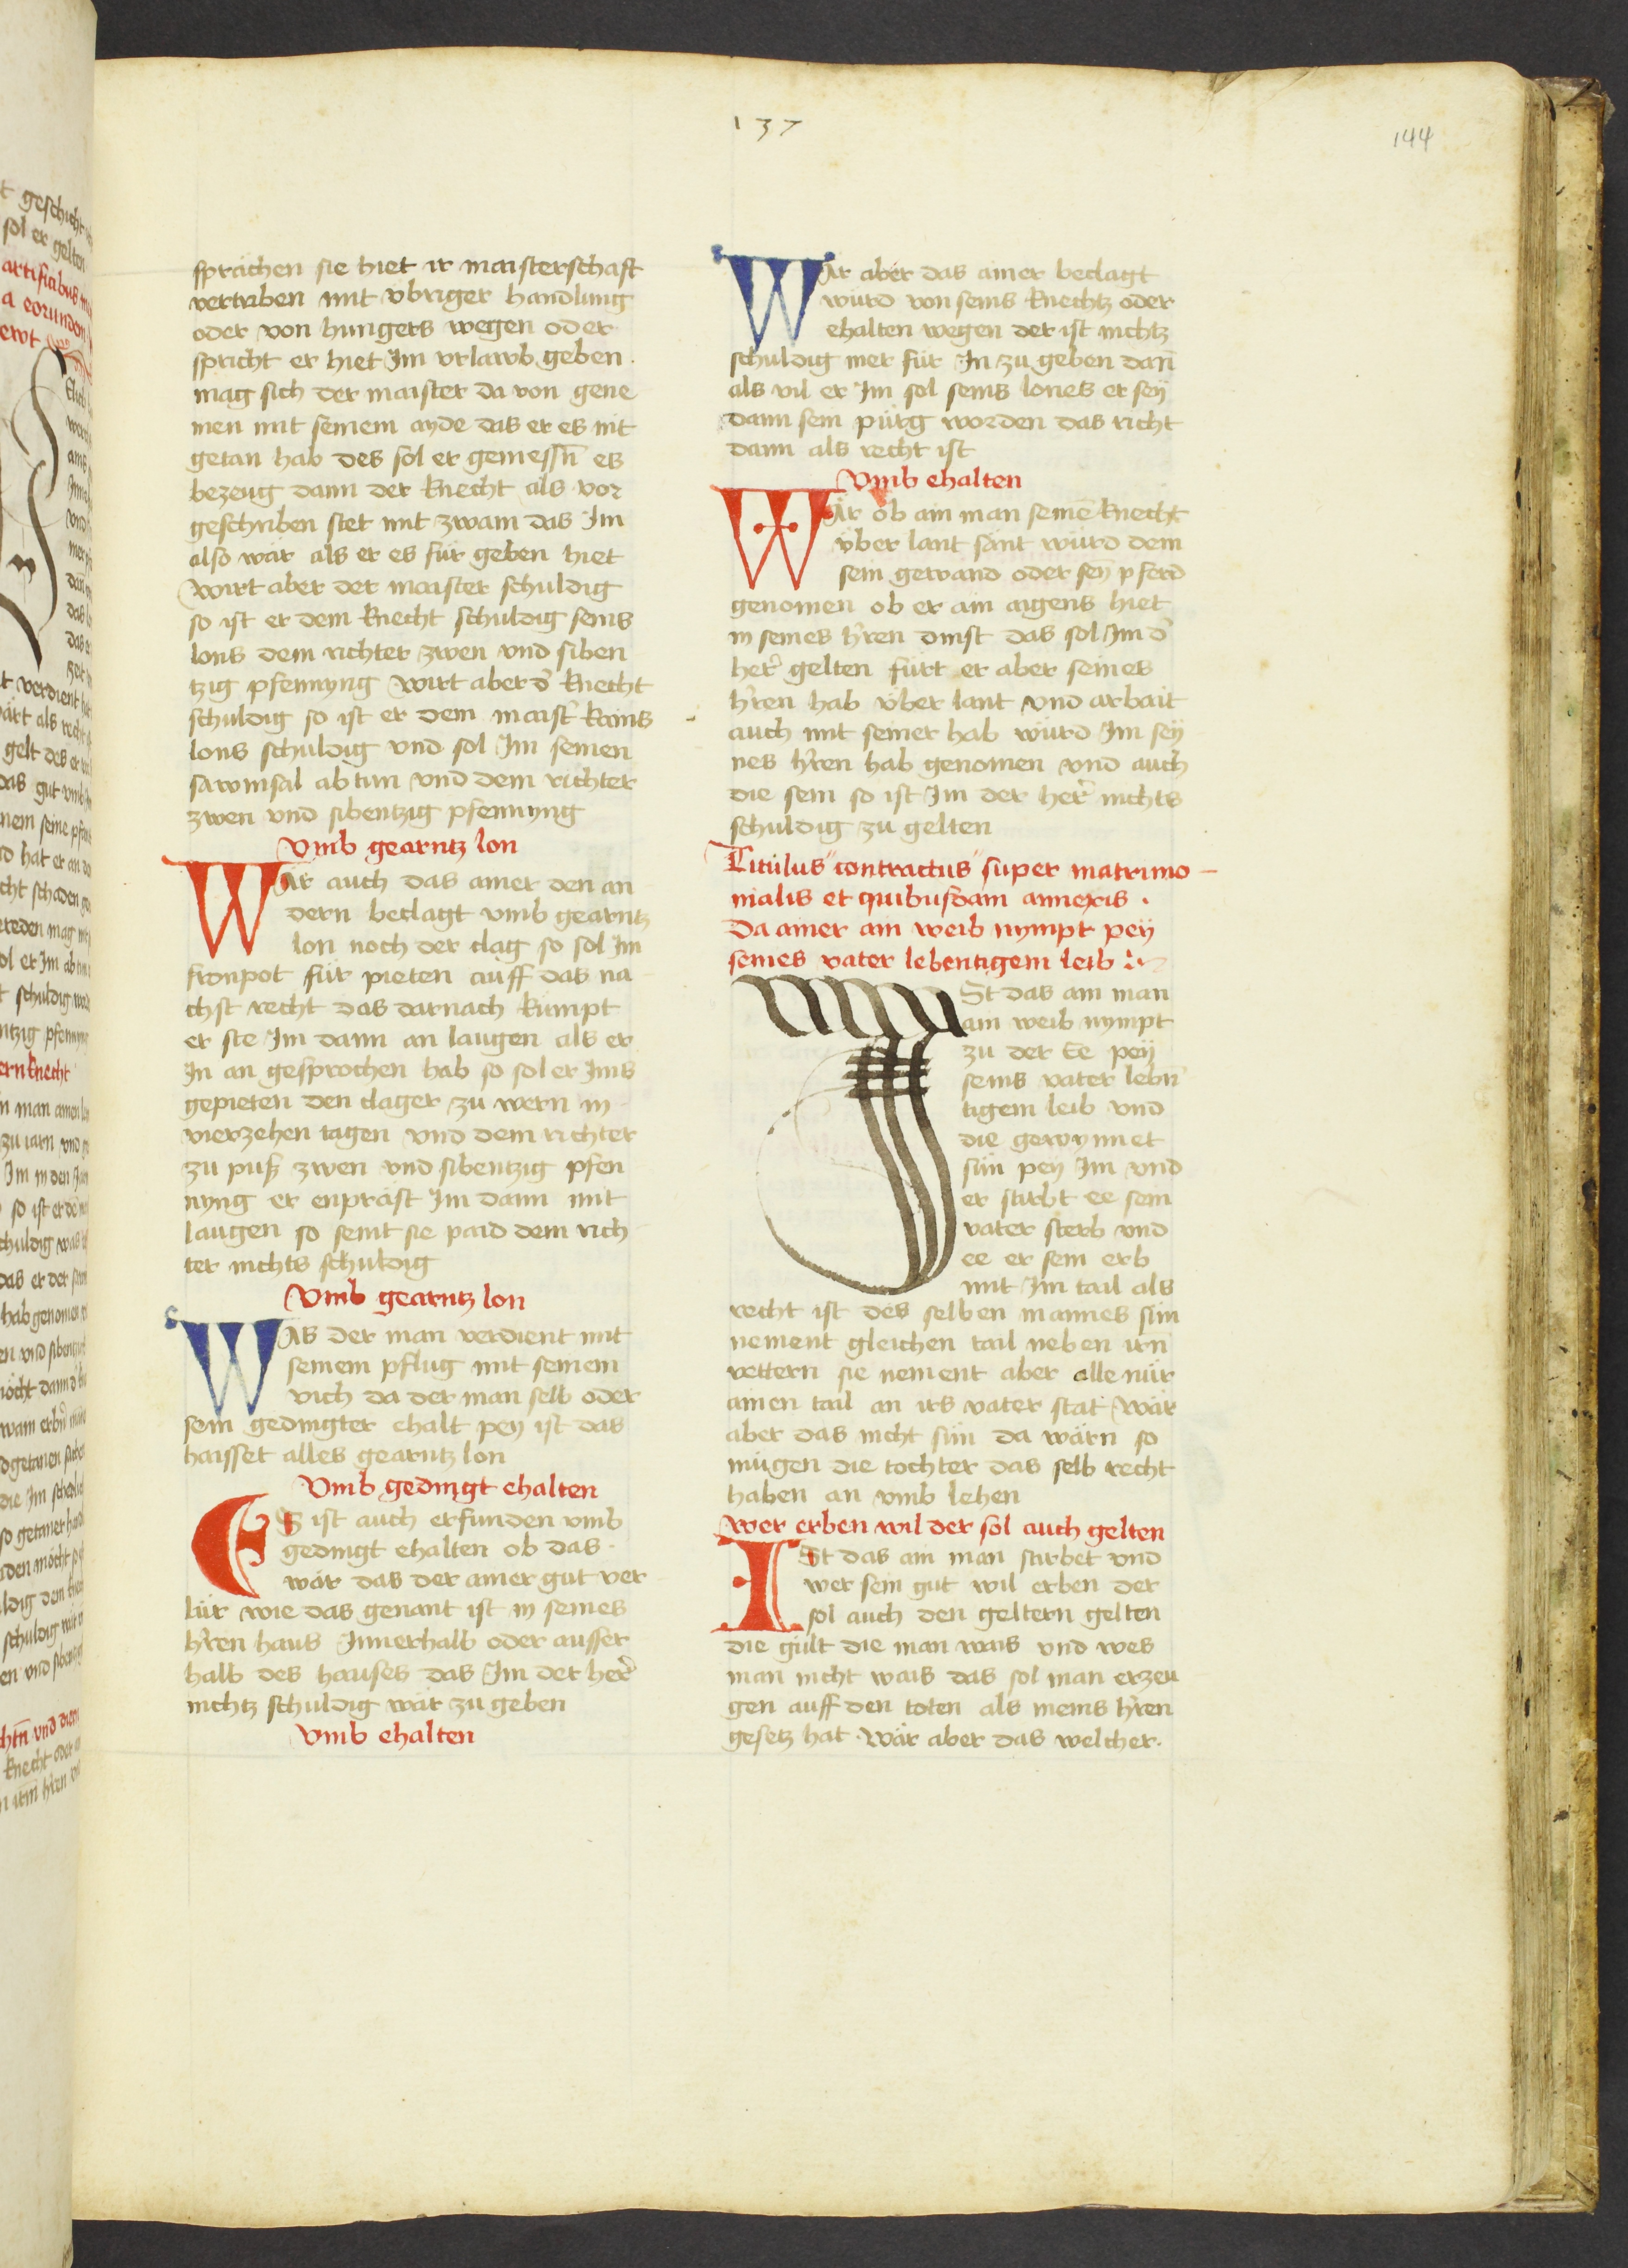 137
144
sprächen sie hiet ir maisterschaft
vertriben mit vbriger handlung
oder von hungers wegen oder
spricht er hiet Im vrlawb geben.
mag sich der maister da von gene
men mit seinem ayde das er es nit
getan hab des sol er geniessn̄ es
bezeug dann der knecht als vor
geschriben stet mit zwain das Im
also wär als er es für geben hiet
wirt aber der maister schuldig
so ist er dem knecht schuldig seins
lons dem richter zwen vnd siben
tzig pfennyng wirt aber d̉ knecht
schuldig so ist er dem maist̉ kains
lons schuldig vnd sol Im seinen
sawmsal ab tun vnd dem richter
zwen vnd sibentzig pfennyng
Vmb gearntz lon
WAr auch das ainer den an
dern beclagt vmb gearntz
lon noch der clag so sol Im
fronpot für pieten auff das na
chst recht das darnach kumpt
er ste Im dann an laugen als er
In an gesprochen hab so sol er Ims
gepieten den clager zu wern in
vierzehen tagen vnd dem richter
zu puß zwen vnd sibentzig pfen
nyng er enpräst Im dann mit
laugen so seint sie paid dem rich
ter nichts schuldig
Vmb gearntz lon
WAs der man verdient mit
seinem pflug mit seinem
vich da der man selb oder
sein gedingter ehalt pey ist das
haisset alles gearntz lon
Vmb gedingt ehalten
ES ist auch erfunden vmb
gedingt ehalten ob das.
wär das der ainer gut ver
lür wie das genant ist in seines
h̉ren haus Innerhalb oder ausser
halb des hauses das Im der her̉
nichtz schuldig wär zu geben
Vmb ehalten
WAr aber das ainer beclagt
würd von seins knechtz oder
ehalten wegen der ist nichtz
schuldig mer für In zu geben dan̄
als vil er Im sol seins lones er sey
dann sein pürg worden das richt
dann als recht ist
Vmb ehalten
WAr ob ain man seinē knecht
über lant sänt würd dem
sein gewand oder sey̅ pferd
genomen ob er ain aigens hiet
in seines h̉ren dinst das sol Im d̉
her̉ gelten fürt er aber seines
h̉ren hab vber lant vnd arbait
auch mit seiner hab würd Im sey
nes h̉ren hab genomen vnd auch
die sein so ist Im der her̉ nichts
schuldig zu gelten
Titulus contractus super matrimo
nialis et quibusdam annexis.
Da ainer ain weib nympt pey
seines vater lebentigem leib
ISt das ain man
ain weib nympt
zu der Ee pey
seins vater lebn̄
tigem leib vnd
die gewynnet
sün pey Im vnd
er stirbt ee sein
vater sterb vnd
ee er sein erb
mit Im tail als
recht ist des selben mannes sün
nement gleichen tail neben irn
vettern sie nement aber alle nür
ainen tail an irs vater stat wär
aber das nicht sün da wärn so
mügen die tochter das selb recht
haben an vmb lehen
Wer erben wil der sol auch gelten
ISt das ain man stirbet vnd
wer sein gut wil erben der
sol auch den geltern gelten
die gült die man wais vnd wes
man nicht wais das sol man erzeu
gen auff den toten als meins h̉ren
gesetz hat. wär aber das welcher.